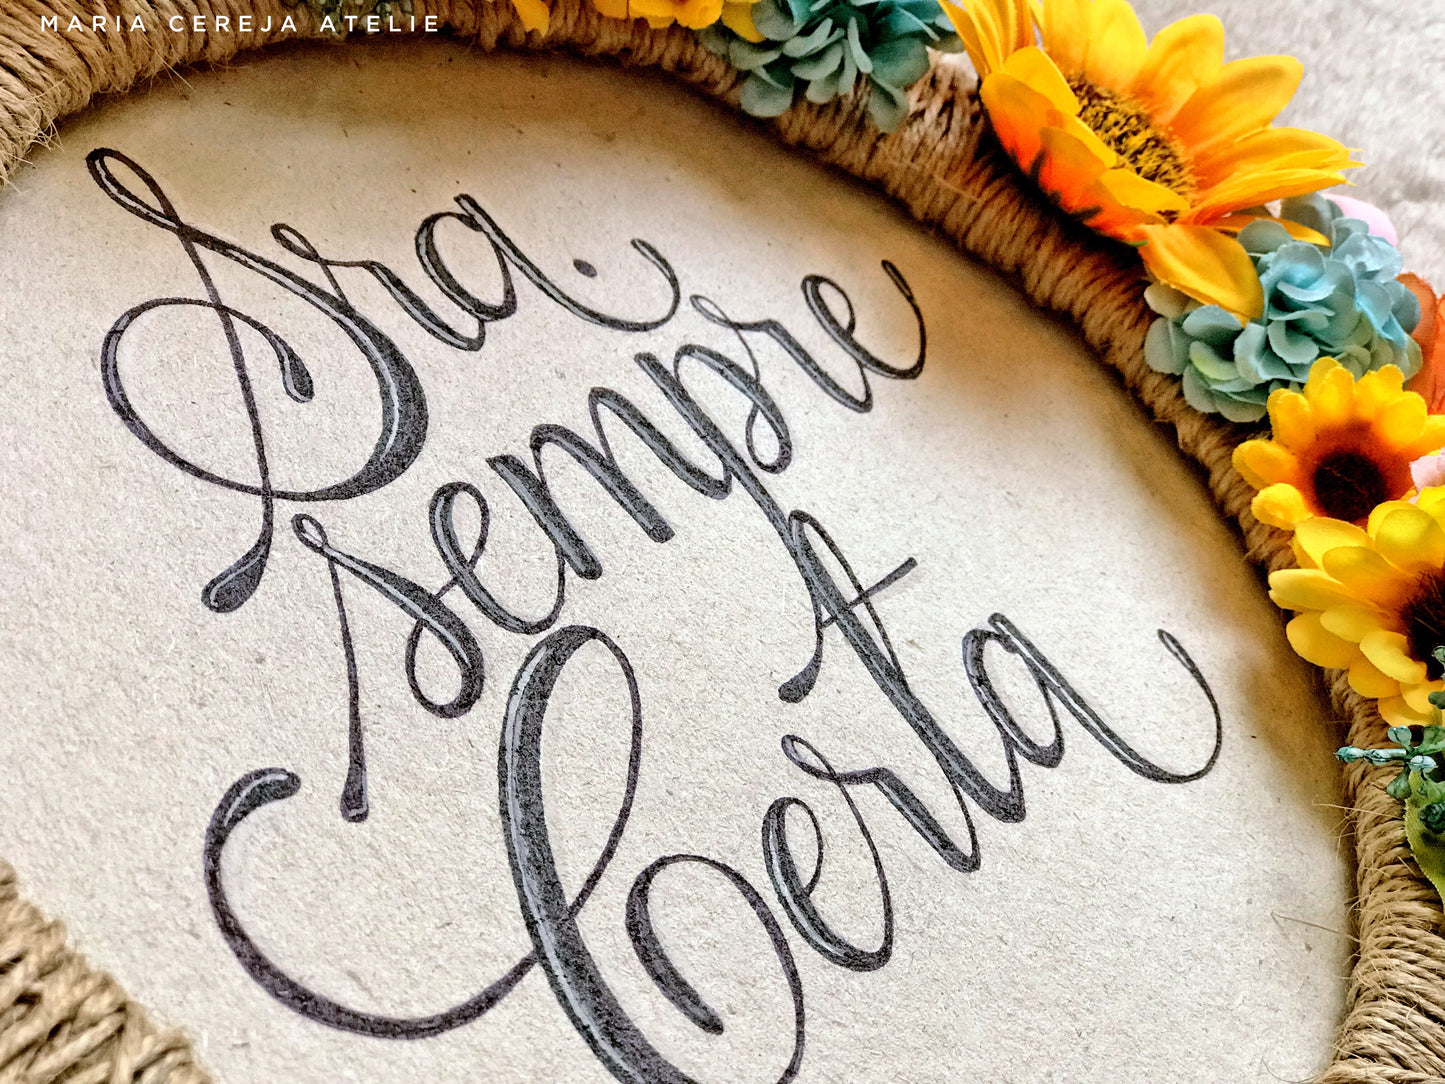 MARIA CEREJA ATELIE
Sra.
sempre
Certa